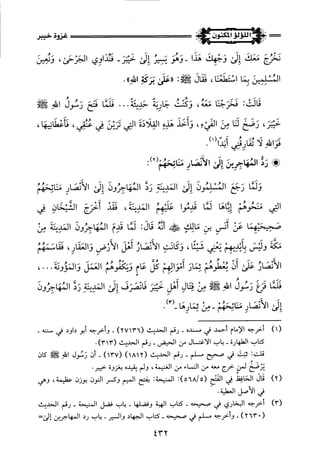 اللؤلؤ المكنون
غزوة خيبر
نَخْرُجَ مَعَكَ إِلَى وَجْهِكَ هَذَا - وَهُوَ يَسِيرُ إِلَى خَيْبَرَ - فَنُدَاوِي الجَرْحَى، وَنُعِينَ
المُسْلِمِينَ بِمَا اسْتَطَعْنَا، فَقَالَ ﷺ: «عَلَى بَرَكَةِ اللهِ».
قَالَتْ: فَخَرَجْنَا مَعَهُ، وَكُنْتُ جَارِيَةً حَدِيثَةً... فَلَمَّا فَتَحَ رَسُولُ اللهِ ﷺ
خَيْبَرَ، رَضَخَ لَنَا مِنَ الفَيْءِ، وَأَخَذَ هَذِهِ القِلَادَةَ التِي تَرَيْنَ فِي عُنُقِي، فَأَعْطَانِيهَا،
فَوَاللهِ لَا تُفَارِقُنِي أَبَدًا(١).
* رَدُّ المُهَاجِرِينَ إِلَى الأَنْصَارِ مَنَائِحَهُمْ(٢):
وَلَمَّا رَجَعَ المُسْلِمُونَ إِلَى المَدِينَةِ رَدَّ المُهَاجِرُونَ إِلَى الأَنْصَارِ مَنَائِحَهُمْ
التِي مَنَحُوهُمْ إِيَّاهَا لَمَّا قَدِمُوا عَلَيْهِمُ المَدِينَةَ، فَقَدْ أَخْرَجَ الشَّيْخَانِ فِي
صَحِيحَيْهِمَا عَنْ أَنَسِ بْنِ مَالِكٍ ﷺ أَنَّهُ قَالَ: لَمَّا قَدِمَ المُهَاجِرُونَ المَدِينَةَ مِنْ
مَكَّةَ وَلَيْسَ بِأَيْدِيهِمْ يَعْنِي شَيْئًا، وَكَانَتِ الأَنْصَارُ أَهْلَ الأَرْضِ وَالعَقَارِ، فَقَاسَمَهُمُ
الأَنْصَارُ عَلَى أَنْ يُعْطُوهُمْ ثِمَارَ أَمْوَالِهِمْ كُلَّ عَامٍ وَيَكْفُوهُمُ العَمَلَ وَالمَؤُونَةَ...،
فَلَمَّا فَرَغَ رَسُولُ اللهِ ﷺ مِنْ قِتَالِ أَهْلِ خَيْبَرَ فَانْصَرَفَ إِلَى المَدِينَةِ رَدَّ المُهَاجِرُونَ
إِلَى الأَنْصَارِ مَنَائِحَهُمْ - مِنْ ثِمَارِهَا -(٣).
(١) أخرجه الإمام أحمد في مسنده - رقم الحديث (٢٧١٣٦) - وأخرجه أبو داود في سننه -
كتاب الطهارة - باب الاغتسال من الحيض - رقم الحديث (٣١٣)
قلت: ثبت في صحيح مسلم - رقم الحديث (١٨١٢) (١٣٧) - أن رسول الله ﷺ كان
يرضخ لمن خرج معه من النساء من الغنيمة، ولم يقيده بغزوة خيبر.
(٢) قال الحافظ في الفتح (٥٦٨/٥): المنيحة: بفتح الميم وكسر النون بوزن عظيمة، وهي
في الأصل العطية.
(٣) أخرجه البخاري في صحيحه - كتاب الهبة وفضلها - باب فضل المنيحة - رقم الحديث
(٢٦٣٠) - وأخرجه مسلم في صحيحه - كتاب الجهاد والسير - باب رد المهاجرين إلى=
٤٣٢